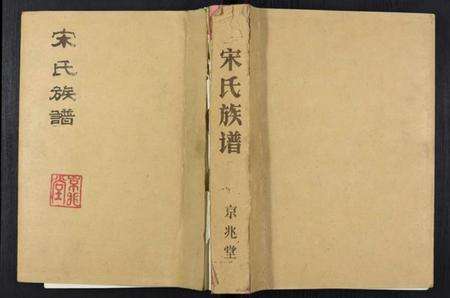 宋氏族譜
京兆堂
宋氏族谱
京兆堂